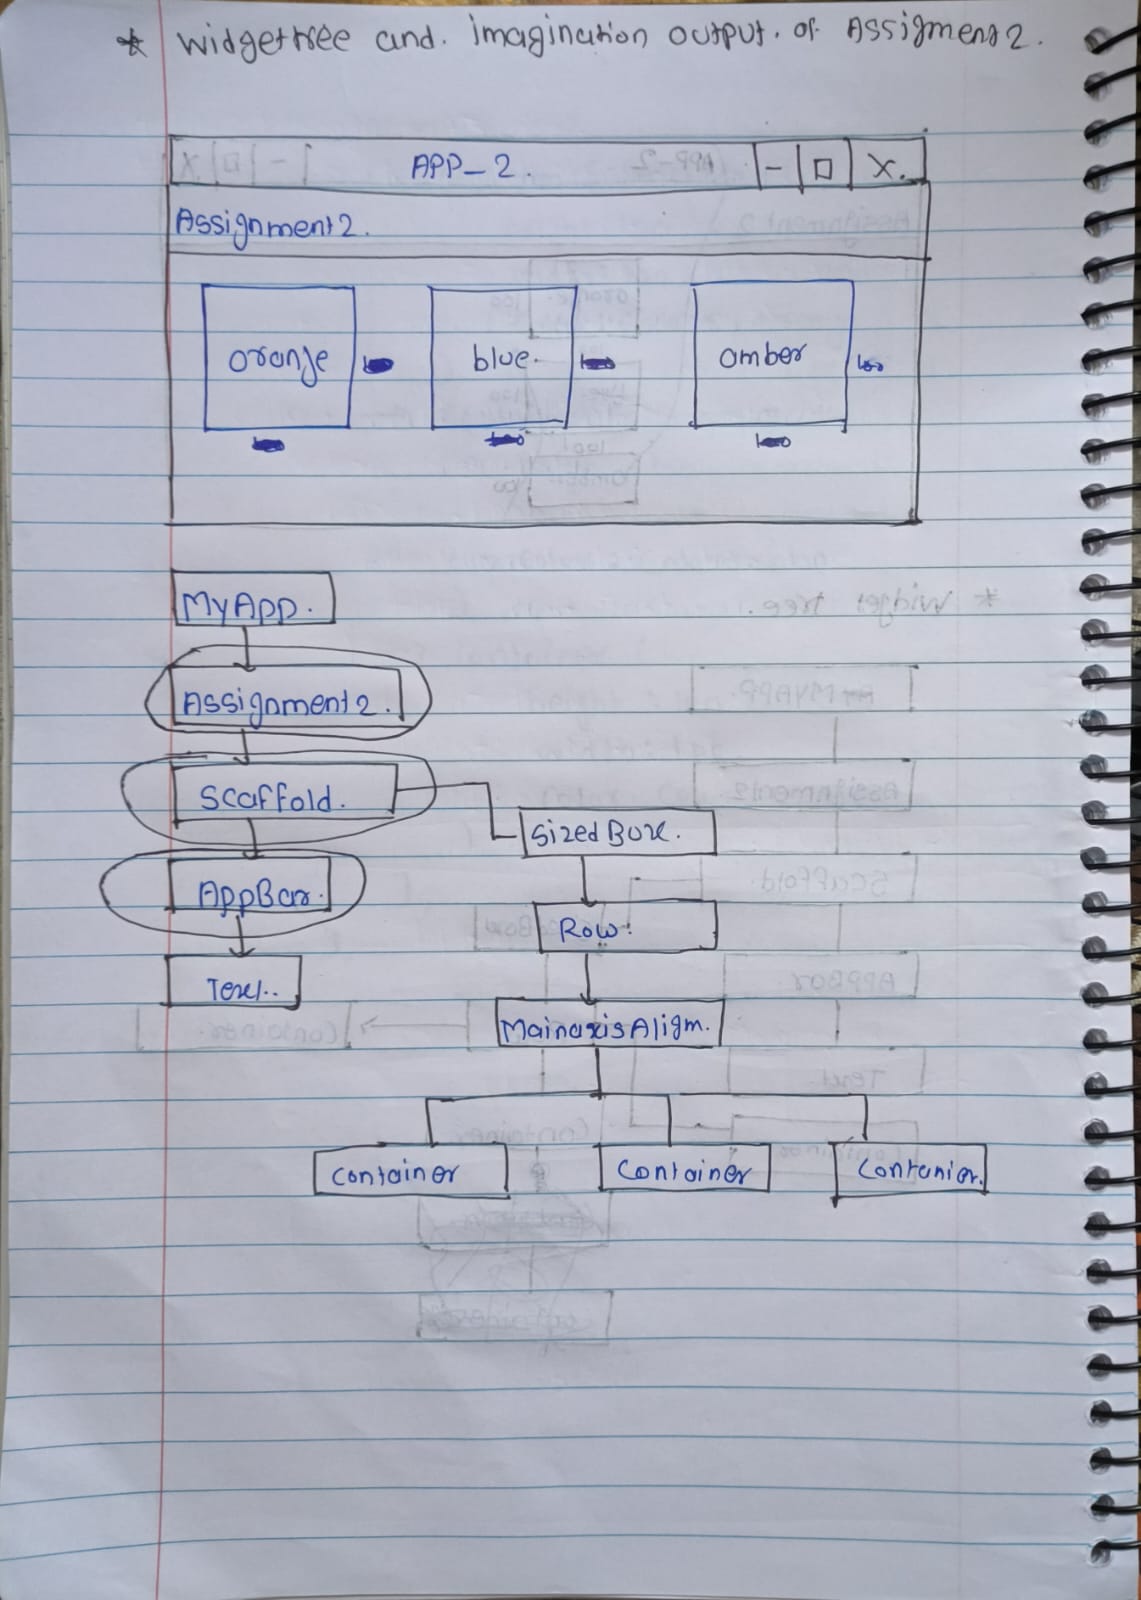 * Widgettree and. imagination output. of Assigment2.
APP_2. - □ X.
Assignment2.
orange blue. amber
100
100
MyApp.
Assignment2.
Scaffold.
Sized Box.
AppBar.
Row.
Text..
MainaxisAligm.
Container Container Contanier.